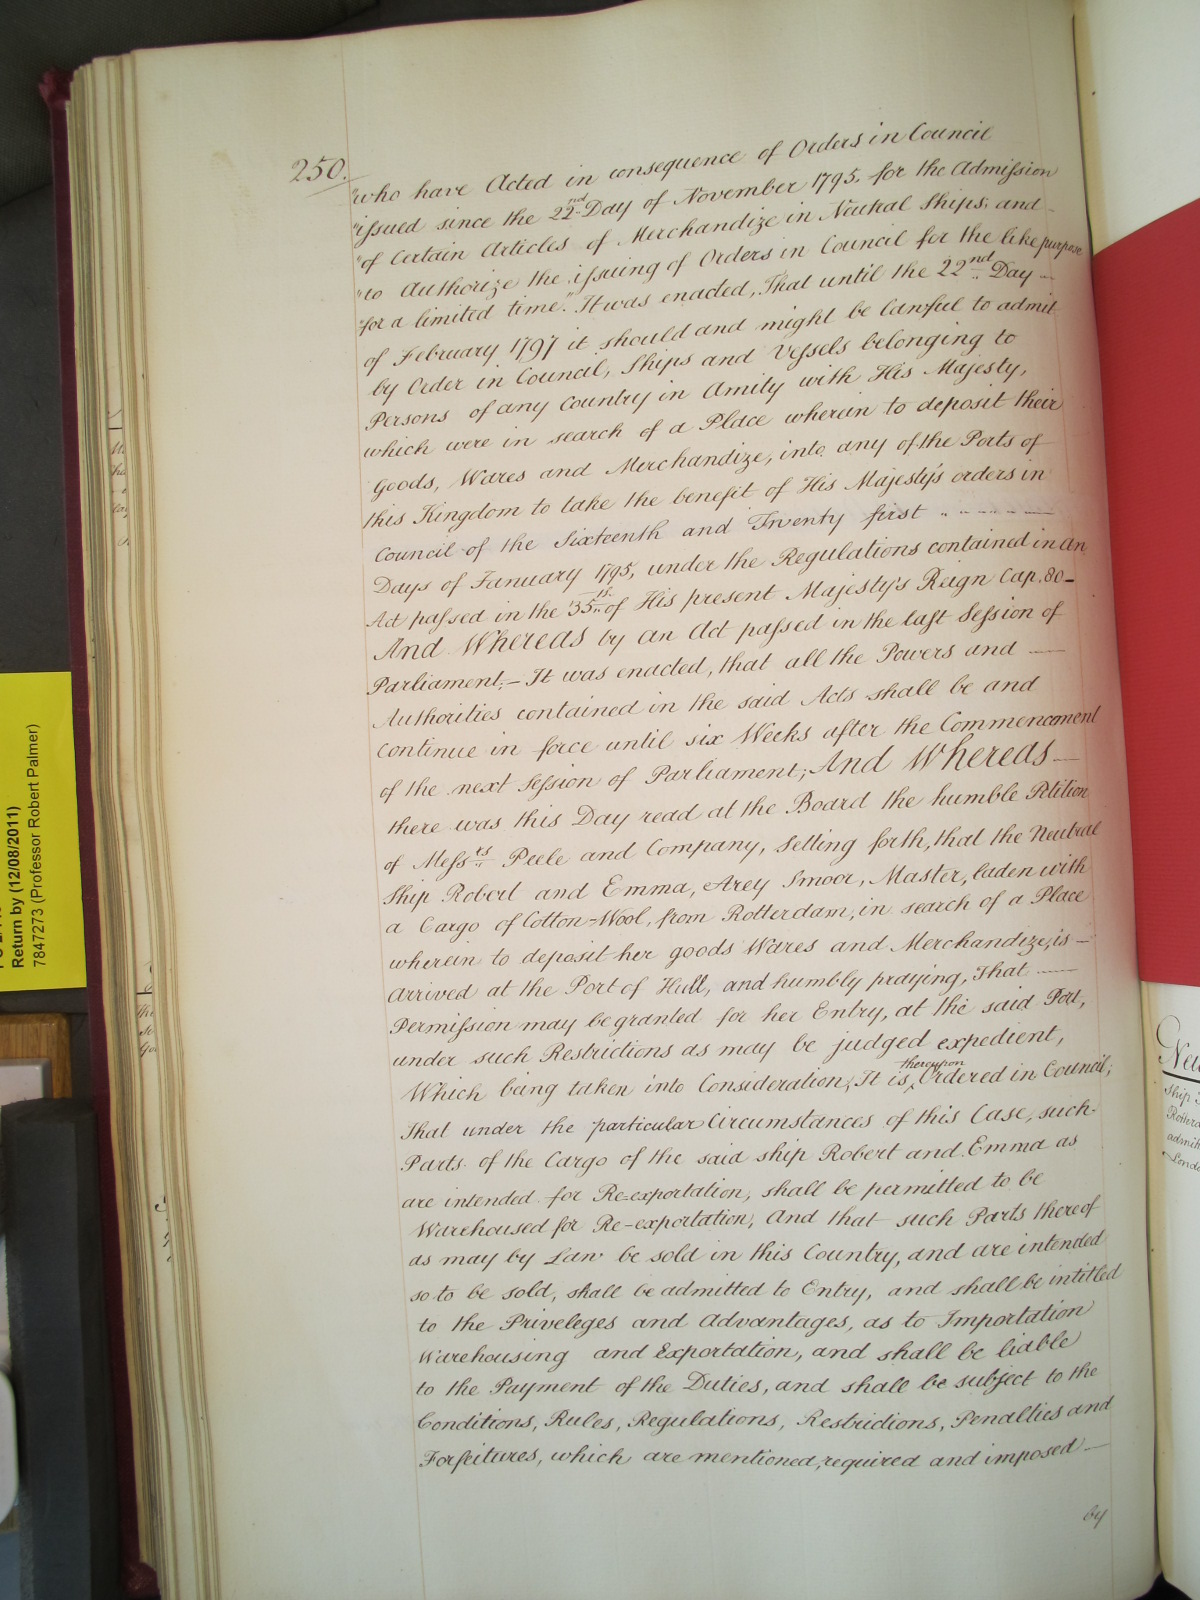 250.
"who have Acted in consequence of Orders in Council
"issued since the 22nd Day of November 1795. for the Admission
"of Certain Articles of Merchandize in Neutral Ships; and
"to Authorize the issuing of Orders in Council for the like purpose
"for a limited time". It was enacted, That until the 22nd Day
of February 1797 it should and might be lawful to admit
by Order in Council, Ships and Vessels belonging to
Persons of any Country in Amity with His Majesty,
which were in search of a Place wherein to deposit their
Goods, Wares and Merchandize, into any of the Ports of
this Kingdom to take the benefit of His Majesty's orders in
Council of the Sixteenth and Twenty first
Days of January 1795, under the Regulations contained in an
Act passed in the 35th of His present Majesty's Reign Cap. 80–
And Whereas by an Act passed in the last Session of
Parliament; – It was enacted, that all the Powers and
Authorities contained in the said Acts shall be and
continue in force until six Weeks after the Commencement
of the next Session of Parliament; And Whereas
there was this Day read at the Board the humble Petition
of Messrs Peele and Company, Setting forth, that the Neutral
Ship Robert and Emma, Arey Smoor, Master, laden with
a Cargo of Cotton-Wool, from Rotterdam, in search of a Place
wherein to deposit her goods Wares and Merchandize, is –
arrived at the Port of Hull, and humbly praying, That
Permission may be granted for her Entry, at the said Port,
under such Restrictions as may be judged expedient,
Which being taken into Consideration, It is thereupon Ordered in Council;
That under the particular Circumstances of this Case, such
Parts of the Cargo of the said ship Robert and Emma as
are intended for Re-exportation, shall be permitted to be
Warehoused for Re-exportation, And that such Parts thereof
as may by Law be sold in this Country, and are intended
so to be sold, shall be admitted to Entry, and shall be intitled
to the Priveleges and Advantages, as to Importation
Warehousing and Exportation, and shall be liable
to the Payment of the Duties, and shall be subject to the
Conditions, Rules, Regulations, Restrictions, Penalties and
Forfeitures, which are mentioned, required and imposed –
by
Return by (12/08/2011)
7847273 (Professor Robert Palmer)
Ship